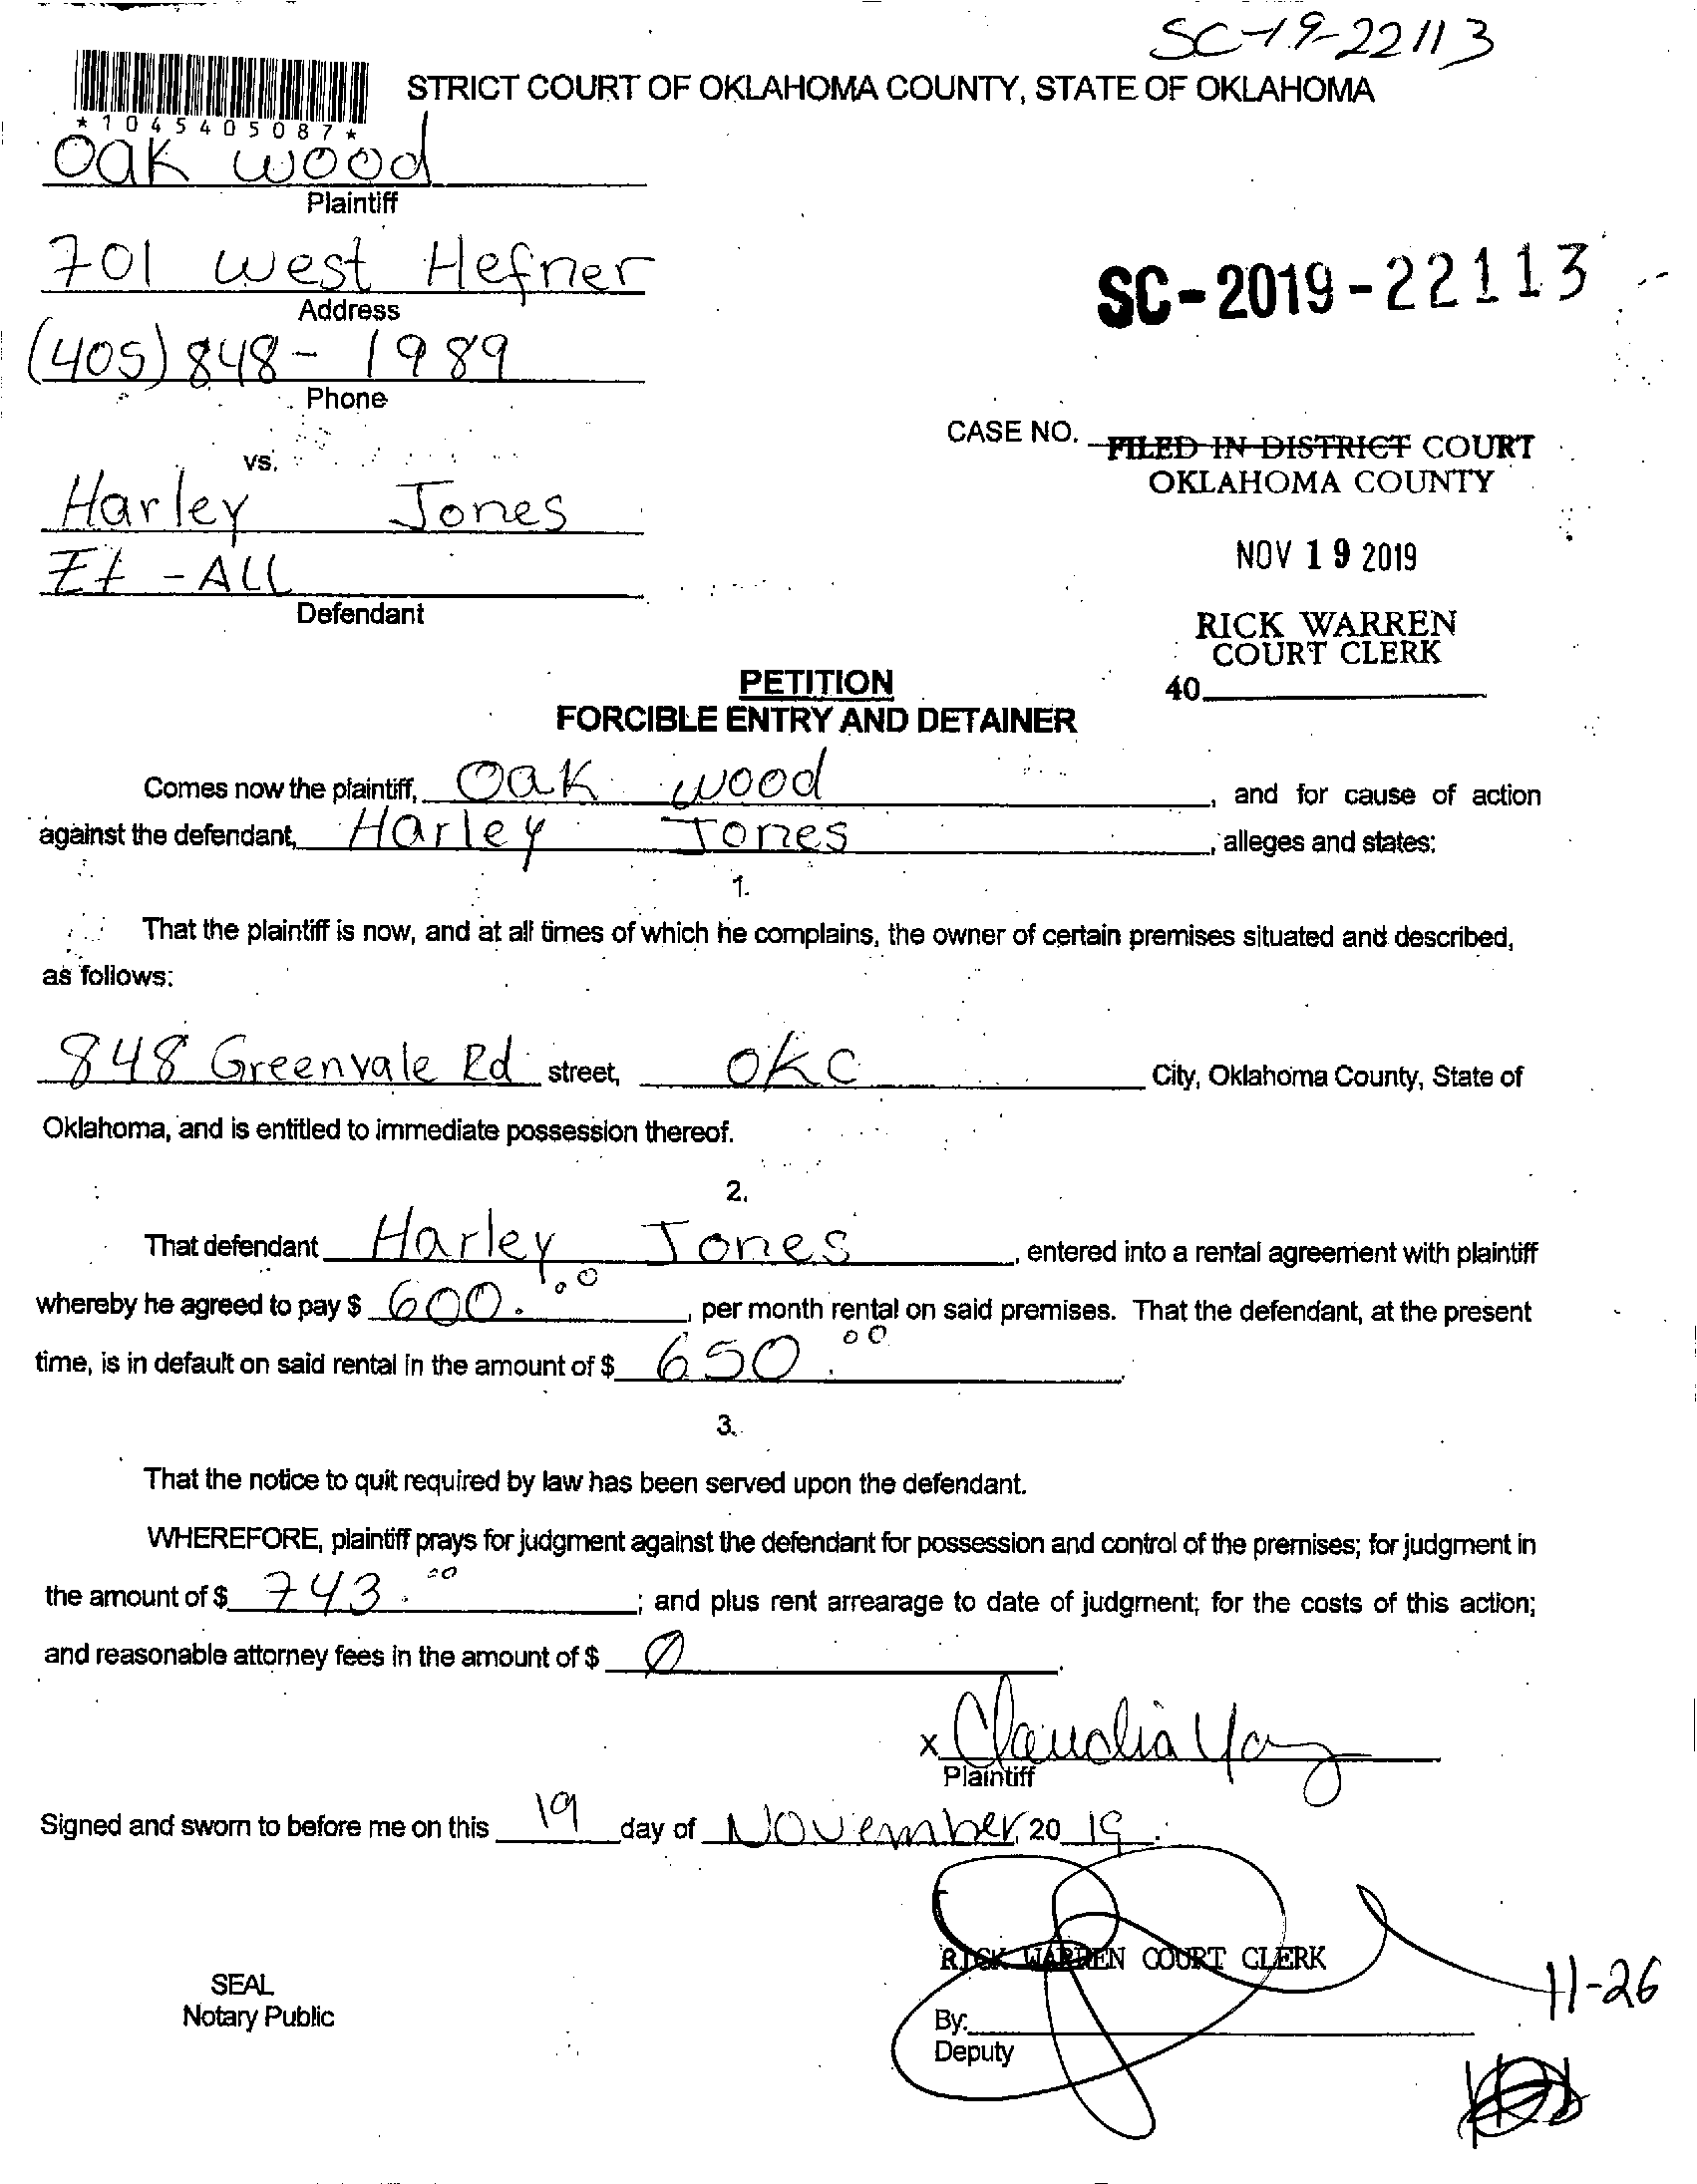 SC-19-22113
STRICT COURT OF OKLAHOMA COUNTY, STATE OF OKLAHOMA
*1045405087*
Oak wood
Plaintiff
701 west Hefner
Address
SC-2019-22113
(405) 848-1989
Phone
CASE NO. FILED IN DISTRICT COURT
OKLAHOMA COUNTY
vs.
Harley Jones
Et-ALL
Defendant
NOV 19 2019
RICK WARREN
COURT CLERK
40
PETITION
FORCIBLE ENTRY AND DETAINER
Comes now the plaintiff, Oak wood, and for cause of action
against the defendant, Harley Jones, alleges and states:
1.
That the plaintiff is now, and at all times of which he complains, the owner of certain premises situated and described,
as follows:
848 Greenvale Rd street, OKC City, Oklahoma County, State of
Oklahoma, and is entitled to immediate possession thereof.
2.
That defendant Harley Jones, entered into a rental agreement with plaintiff
whereby he agreed to pay $ 600.00, per month rental on said premises. That the defendant, at the present
time, is in default on said rental in the amount of $ 650.00.
3.
That the notice to quit required by law has been served upon the defendant.
WHEREFORE, plaintiff prays for judgment against the defendant for possession and control of the premises; for judgment in
the amount of $ 743.00; and plus rent arrearage to date of judgment; for the costs of this action;
and reasonable attorney fees in the amount of $ 0.
x Claudia
Plaintiff
Signed and sworn to before me on this 19 day of November, 20 19.
RICK WARREN COURT CLERK
11-26
SEAL
Notary Public
By:
Deputy